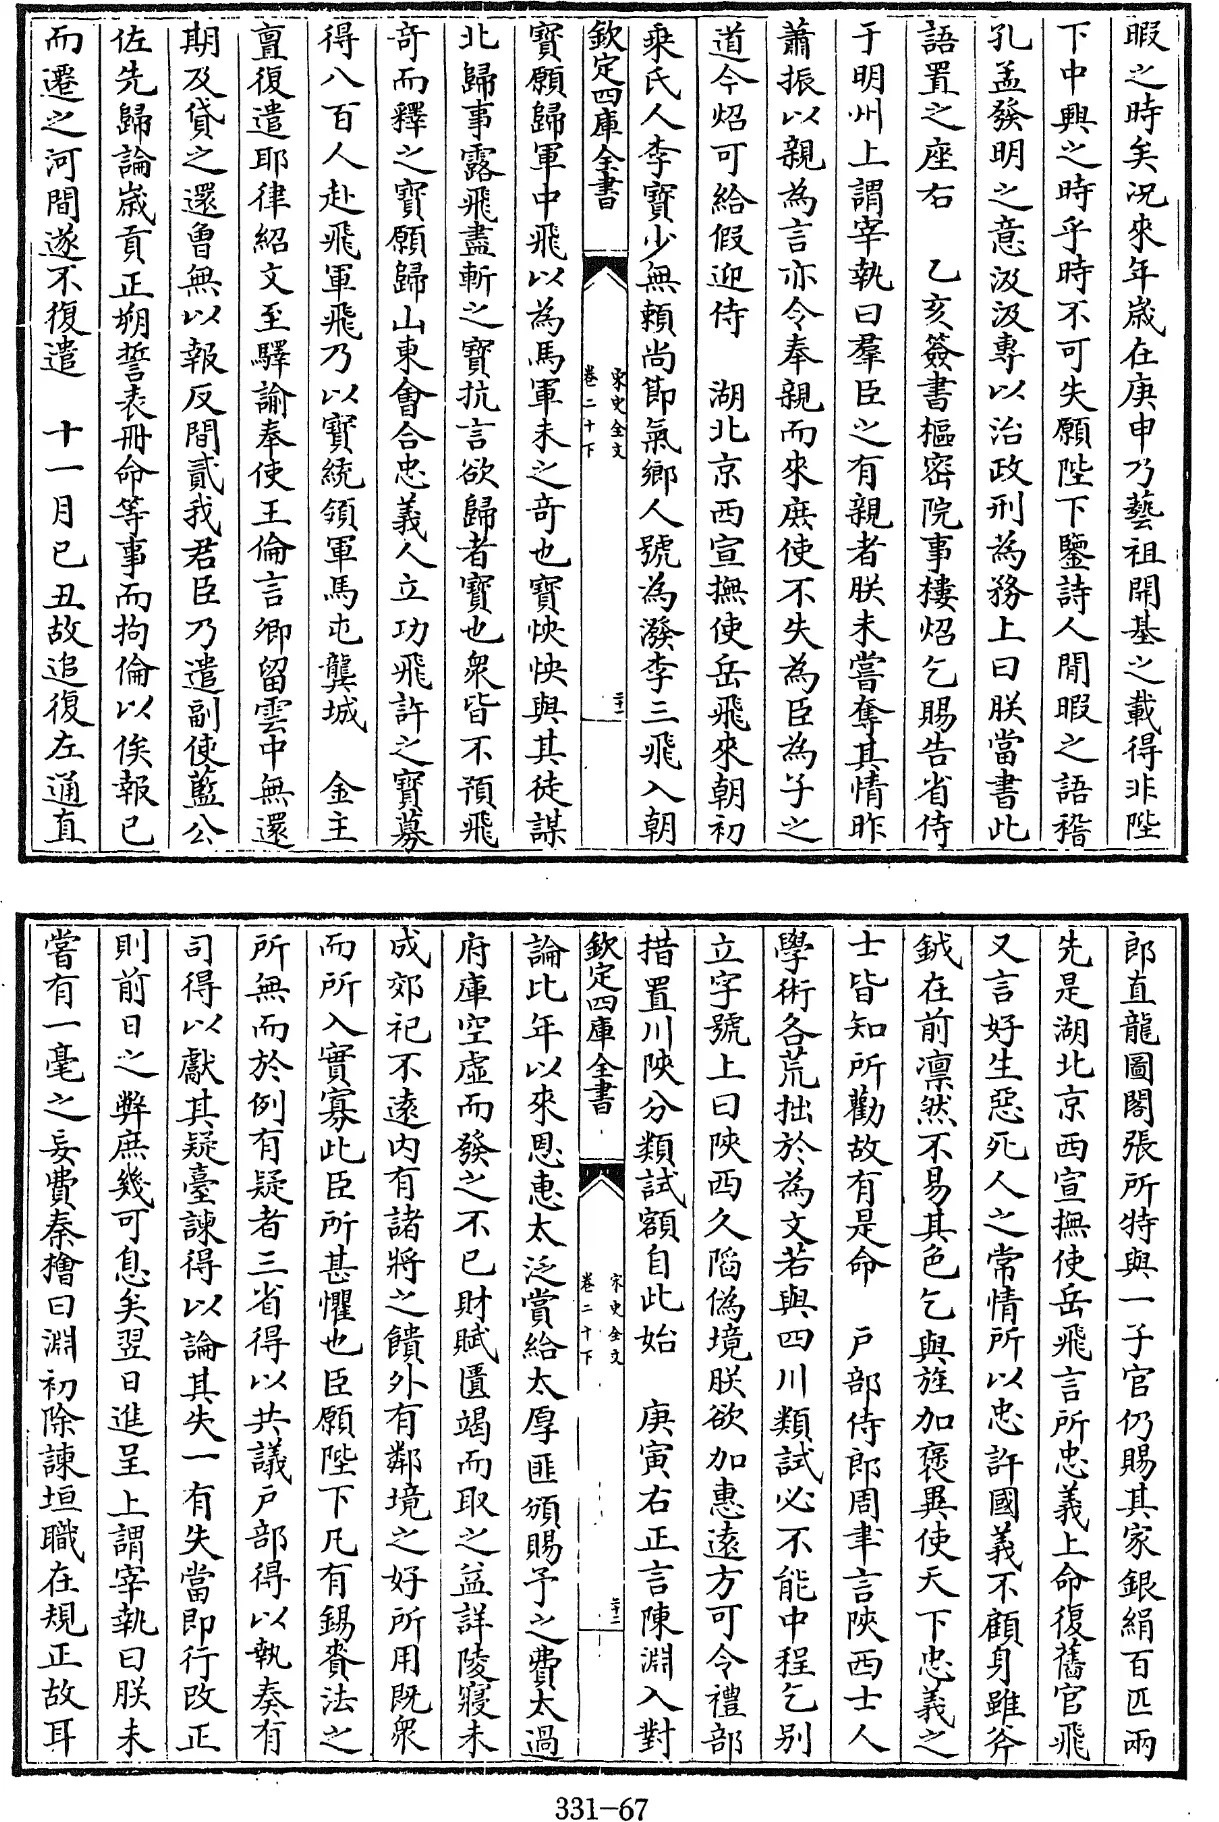 暇之時矣况來年歳在庚申乃藝祖開基之載得非陛
下中興之時乎時不可失願陛下鑒詩人閒暇之語稽
孔孟發明之意汲汲專以治政刑為務上曰朕當書此
語置之座右　乙亥簽書樞密院事樓炤乞賜告省侍
于明州上謂宰執曰羣臣之有親者朕未嘗奪其情昨
蕭振以親為言亦令奉親而來庶使不失為臣為子之
道今炤可給假迎侍　湖北京西宣撫使岳飛來朝初
乘氏人李寳少無頼尚節氣鄉人號為潑李三飛入朝
欽定四庫全書
宋史全文
卷二十下
二十一
寳願歸軍中飛以為馬軍未之竒也寳怏怏與其徒謀
北歸事露飛盡斬之寳抗言欲歸者寳也衆皆不預飛
竒而釋之寳願歸山東會合忠義人立功飛許之寳募
得八百人赴飛軍飛乃以寳統領軍馬屯龔城　金主
亶復遣耶律紹文至驛諭奉使王倫言卿留雲中無還
期及貸之還曽無以報反間貳我君臣乃遣副使藍公
佐先歸論歳貢正朔誓表冊命等事而拘倫以俟報已
而遷之河間遂不復遣　十一月已丑故追復左通直
郎直龍圖閣張所特與一子官仍賜其家銀絹百匹兩
先是湖北京西宣撫使岳飛言所忠義上命復舊官飛
又言好生惡死人之常情所以忠許國義不顧身雖斧
鉞在前凛然不易其色乞與旌加褒異使天下忠義之
士皆知所勸故有是命　戸部侍郎周聿言陜西士人
學術各荒拙於為文若與四川類試必不能中程乞别
立字號上曰陜西久䧟偽境朕欲加惠逺方可令禮部
措置川陜分類試額自此始　庚寅右正言陳淵入對
欽定四庫全書
宋史全文
卷二十下
二十二
論比年以來恩恵太泛賞給太厚匪頒賜予之費太過
府庫空虛而發之不已財賦匱竭而取之益詳陵寢未
成郊祀不逺内有諸將之饋外有鄰境之好所用既衆
而所入實寡此臣所甚懼也臣願陛下凡有錫賚法之
所無而於例有疑者三省得以共議戸部得以執奏有
司得以獻其疑臺諫得以論其失一有失當即行改正
則前日之弊庶幾可息矣翌日進呈上謂宰執曰朕未
嘗有一毫之妄費秦檜曰淵初除諫垣職在規正故耳
331-67